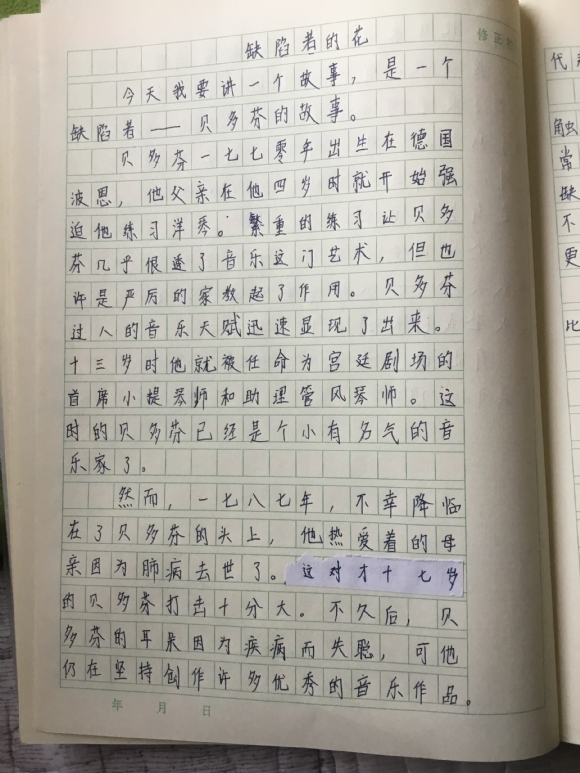 缺陷者的花
今天我要讲一个故事，是一个
缺陷者——贝多芬的故事。
贝多芬一七七零年出生在德国
波恩，他父亲在他四岁时就开始强
迫他练习洋琴。繁重的练习让贝多
芬几乎恨透了音乐这门艺术，但也
许是严厉的家教起了作用。贝多芬
过人的音乐天赋迅速显现了出来。
十三岁时他就被任命为宫廷剧场的
首席小提琴师和助理管风琴师。这
时的贝多芬已经是个小有名气的音
乐家了。
然而，一七八七年，不幸降临
在了贝多芬的头上，他热爱着的母
亲因为肺病去世了。这对才十七岁
的贝多芬打击十分大。不久后，贝
多芬的耳朵因为疾病而失聪，可他
仍在坚持创作许多优秀的音乐作品。
年 月 日
修正
代
触
常
缺
不
更
比